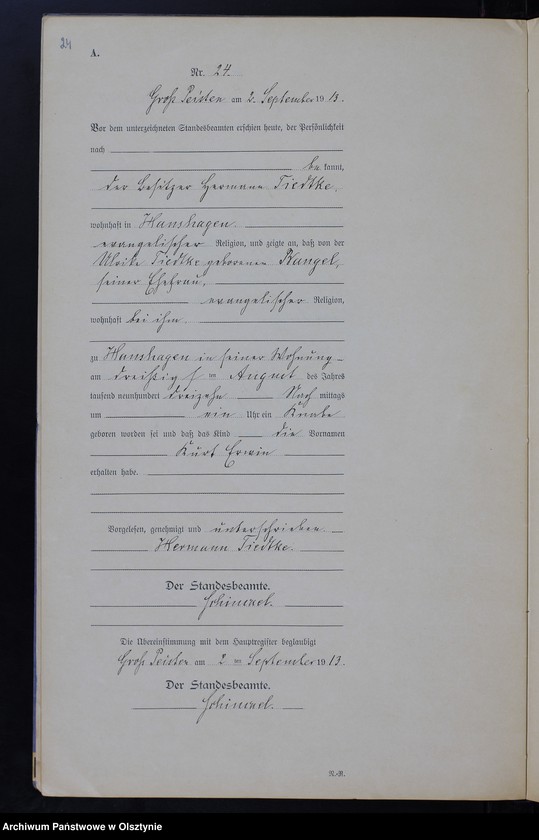 24
A.
Nr. 24.
Groß Peisten am 2. September 1913.
Vor dem unterzeichneten Standesbeamten erschien heute, der Persönlichkeit
nach
be kannt,
der Besitzer Hermann Tiedtke,
wohnhaft in Hanshagen
evangelischer Religion, und zeigte an, daß von der
Ulrike Tiedtke geborenen Rangel,
seiner Ehefrau,
evangelischer Religion,
wohnhaft bei ihm
zu Hanshagen in seiner Wohnung
am dreißigsten August des Jahres
tausend neunhundert dreizehn Nach mittags
um ein Uhr ein Knabe
geboren worden sei und daß das Kind die Vornamen
Kurt Erwin
erhalten habe.
Vorgelesen, genehmigt und unterschrieben
Hermann Tiedtke.
Der Standesbeamte.
Die Übereinstimmung mit dem Hauptregister beglaubigt
Groß Peisten am 2 September 1913.
Der Standesbeamte.
N.-R.
Archiwum Państwowe w Olsztynie